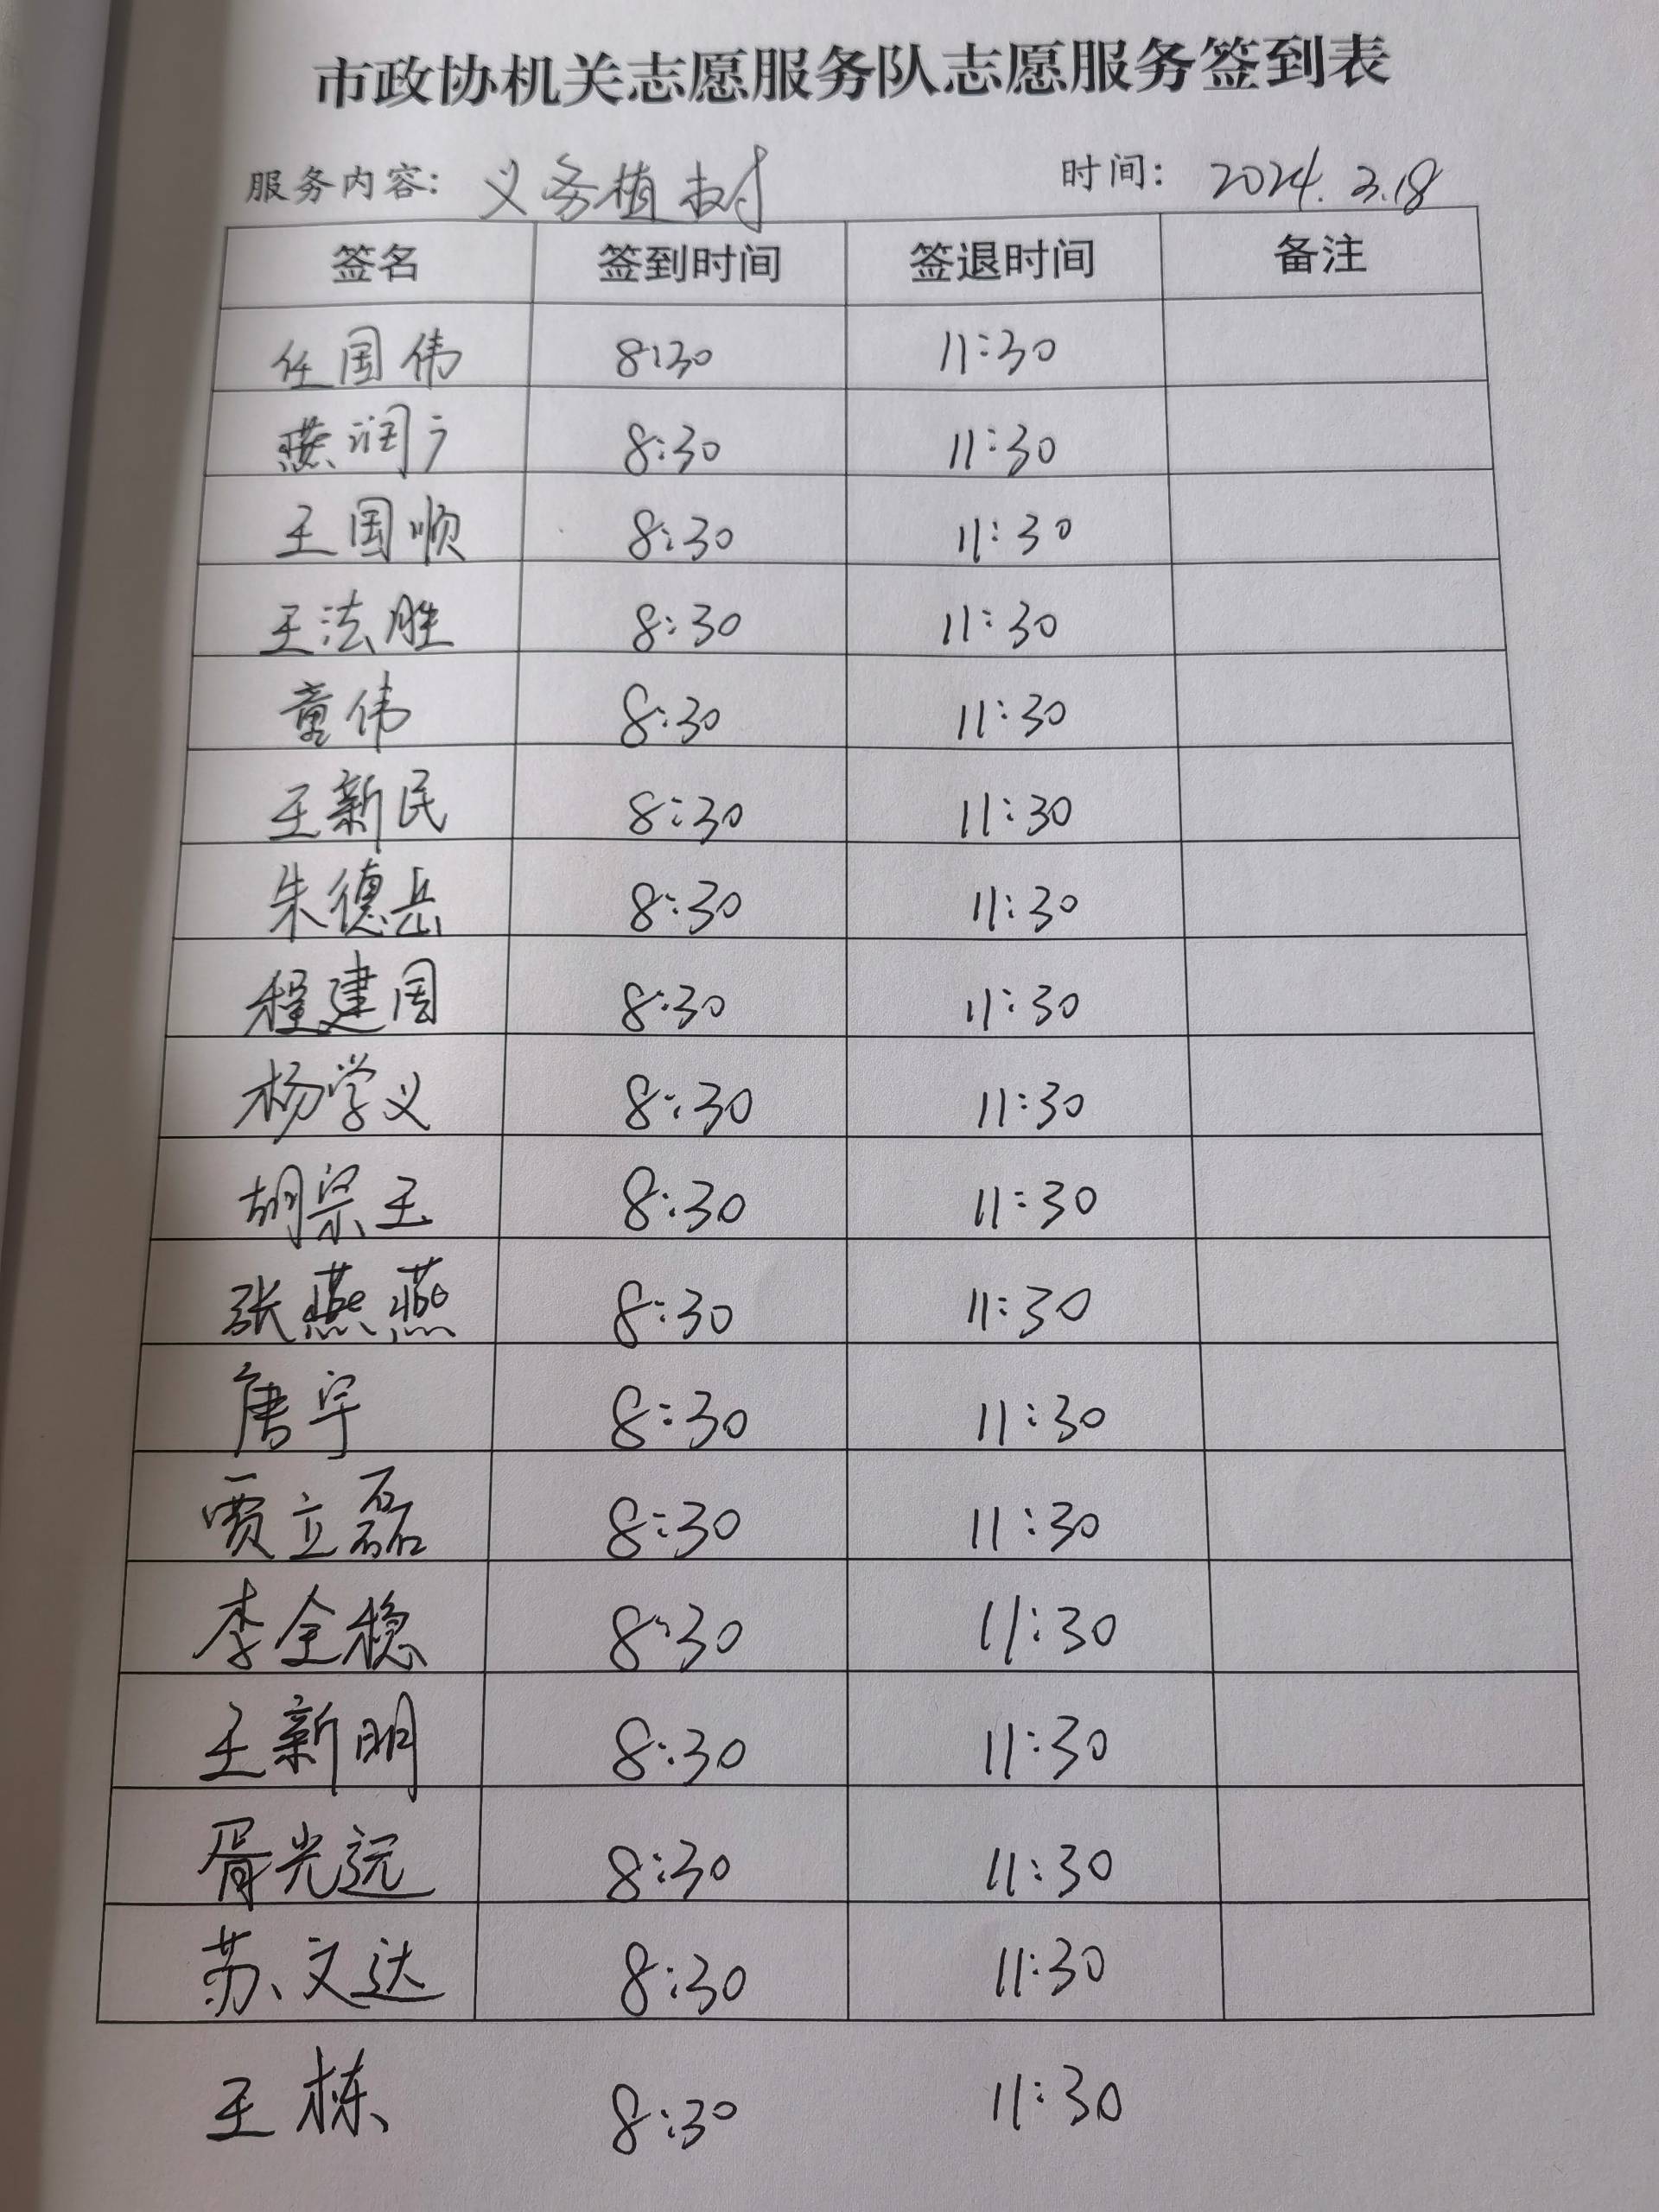 市政协机关志愿服务队志愿服务签到表
服务内容: 义务植树 时间: 2024.3.18
签名 签到时间 签退时间 备注
任国伟 8:30 11:30
燕润广 8:30 11:30
王国顺 8:30 11:30
王法胜 8:30 11:30
童伟 8:30 11:30
王新民 8:30 11:30
朱德岳 8:30 11:30
程建周 8:30 11:30
杨学义 8:30 11:30
胡宗玉 8:30 11:30
张燕燕 8:30 11:30
唐宇 8:30 11:30
贾立磊 8:30 11:30
李全稳 8:30 11:30
王新明 8:30 11:30
胥光远 8:30 11:30
苏文达 8:30 11:30
王栋 8:30 11:30